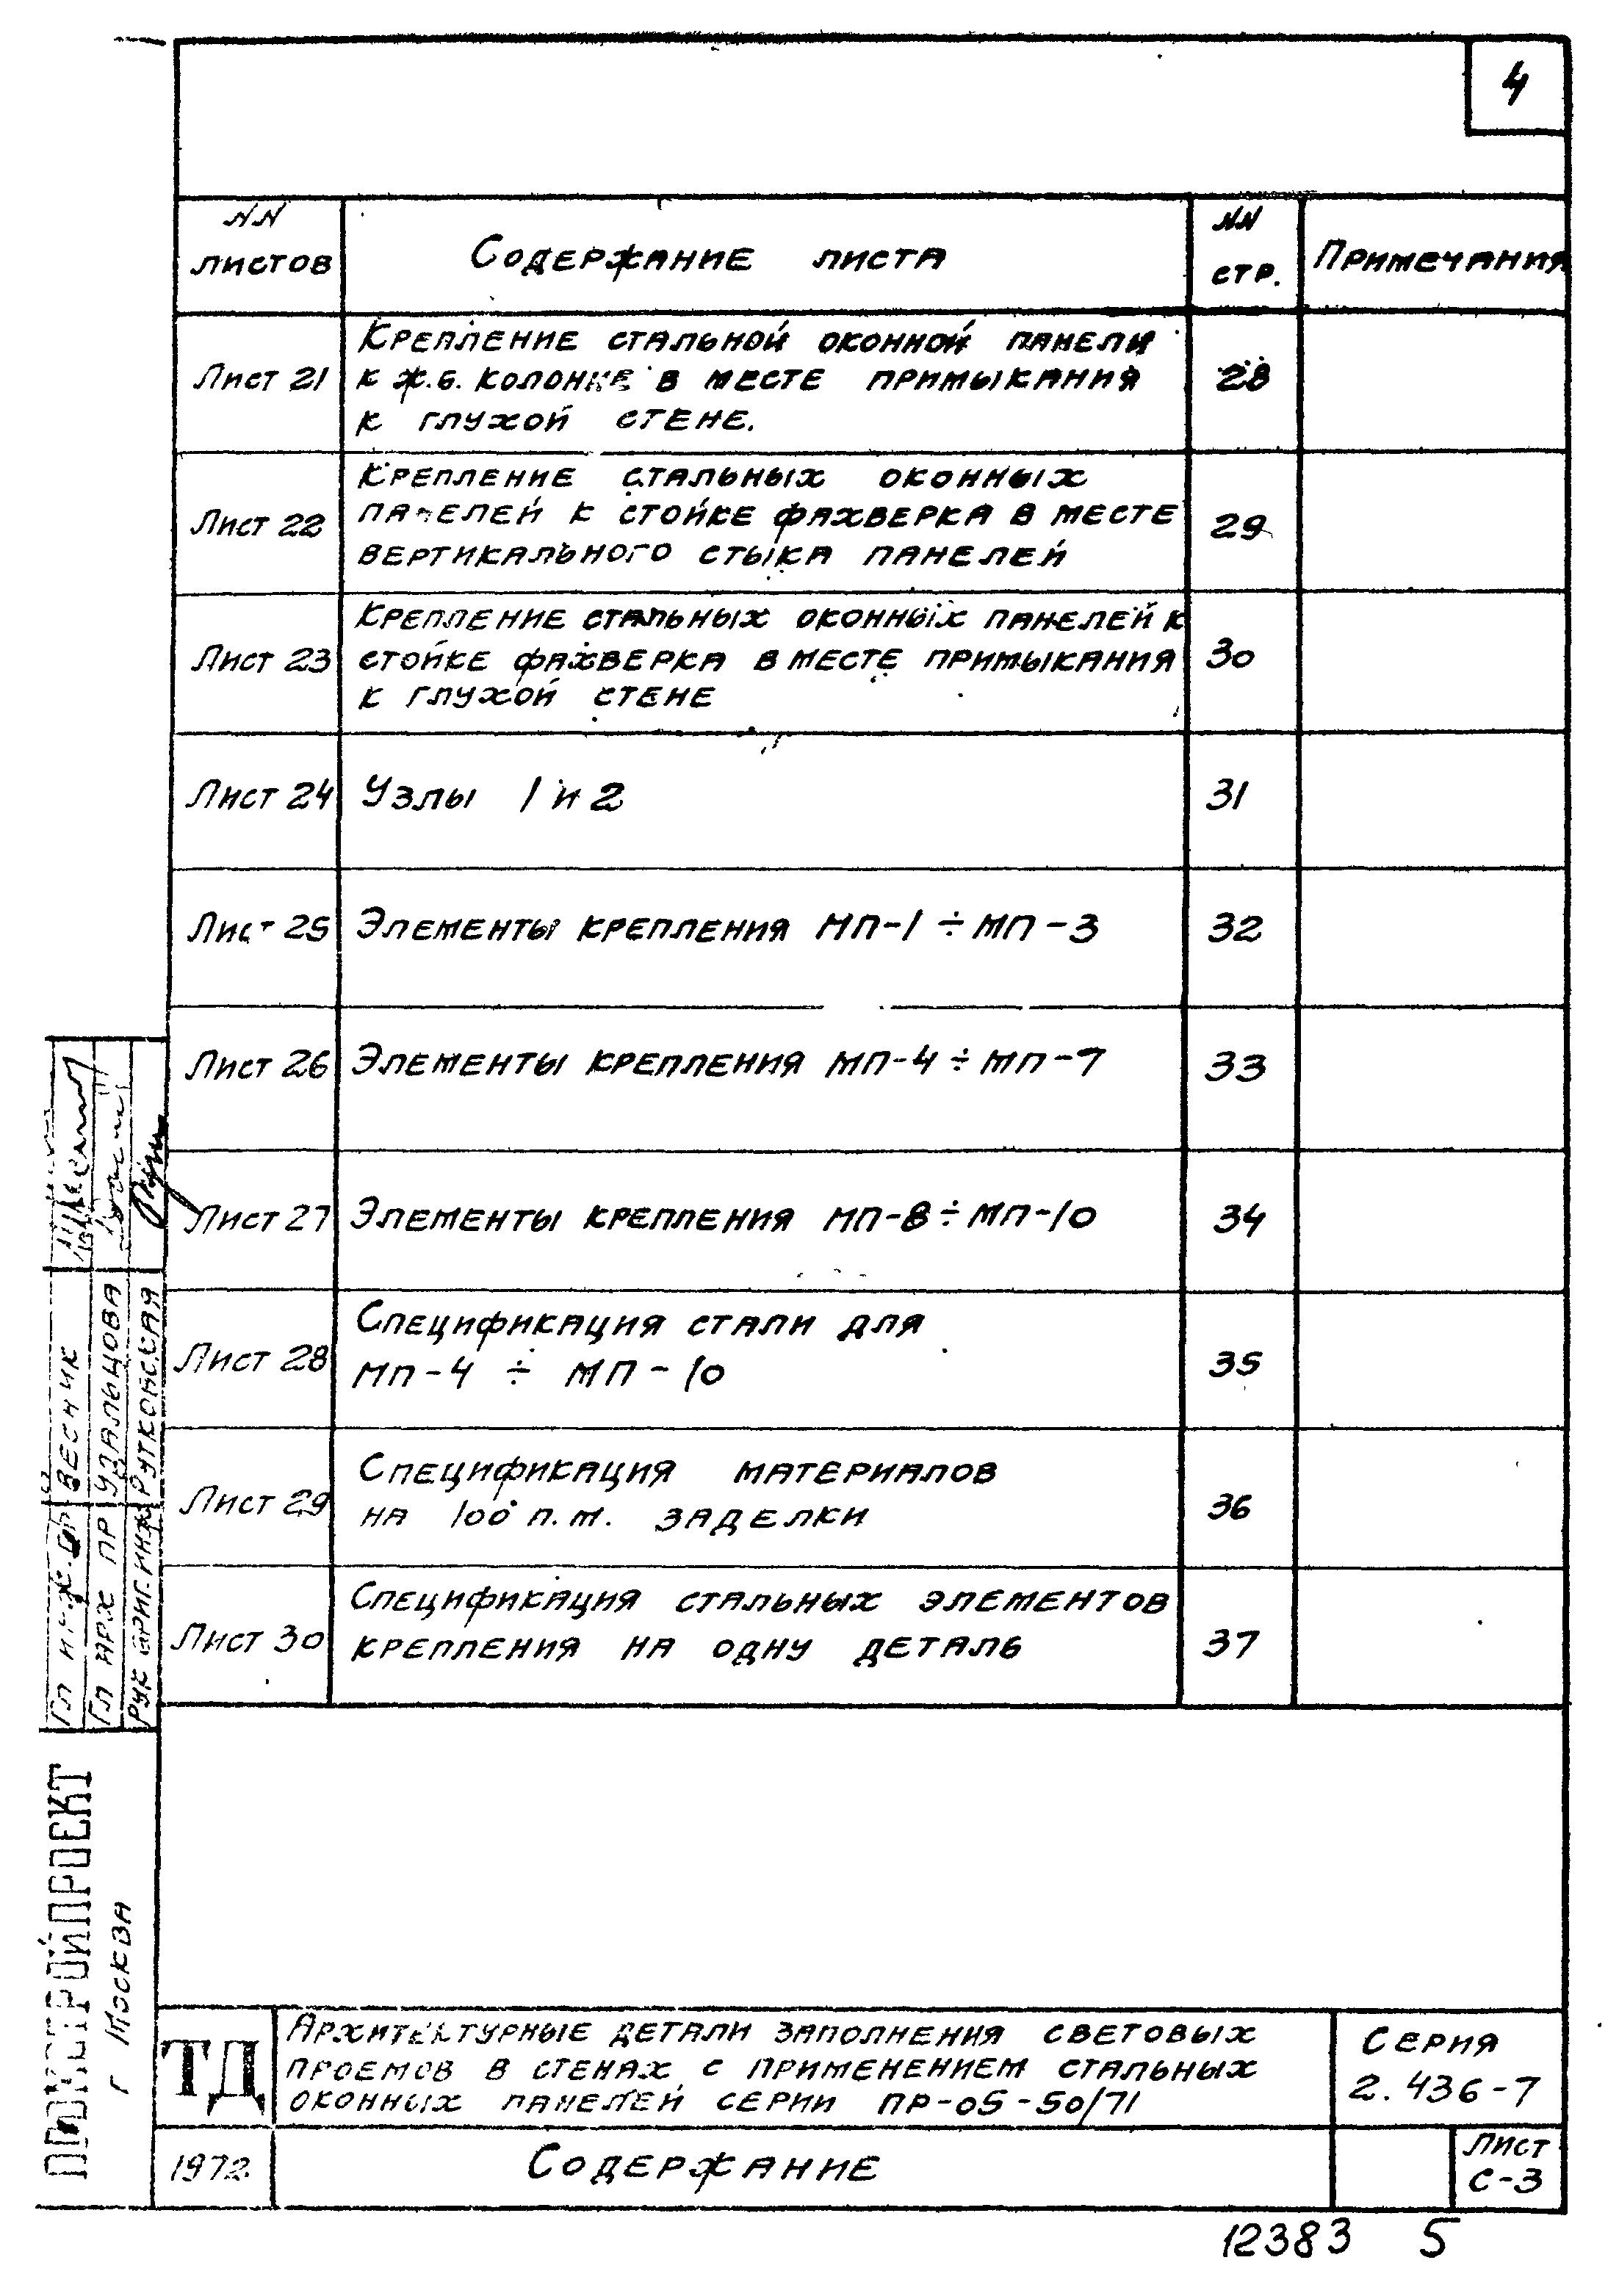 4
NN
листов
Содержание листа
NN
стр.
Примечания
Лист 21
Крепление стальной оконной панели
к ж.б. колонне в месте примыкания
к глухой стене.
28
Лист 22
Крепление стальных оконных
панелей к стойке фахверка в месте
вертикального стыка панелей
29
Лист 23
Крепление стальных оконных панелей к
стойке фахверка в месте примыкания
к глухой стене
30
Лист 24
Узлы 1 и 2
31
Лист 25
Элементы крепления МП-1 ÷ МП-3
32
Лист 26
Элементы крепления МП-4 ÷ МП-7
33
Лист 27
Элементы крепления МП-8 ÷ МП-10
34
Лист 28
Спецификация стали для
МП-4 ÷ МП-10
35
Лист 29
Спецификация материалов
на 100 п.м. заделки
36
Лист 30
Спецификация стальных элементов
крепления на одну деталь
37
Гл инж. пр Весник
Гл арх пр Удальцова
Рук бриг. инж Рутковская
ПРОМСТРОЙПРОЕКТ
г Москва
ТД
Архитектурные детали заполнения световых
проемов в стенах с применением стальных
оконных панелей серии ПР-05-50/71
Серия
2.436-7
1972
Содержание
Лист
С-3
12383 5